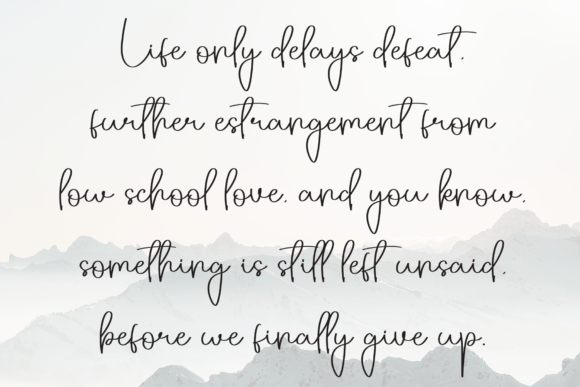 Life only delays defeat.
further estrangement from
low school love. and you know.
something is still left unsaid.
before we finally give up.